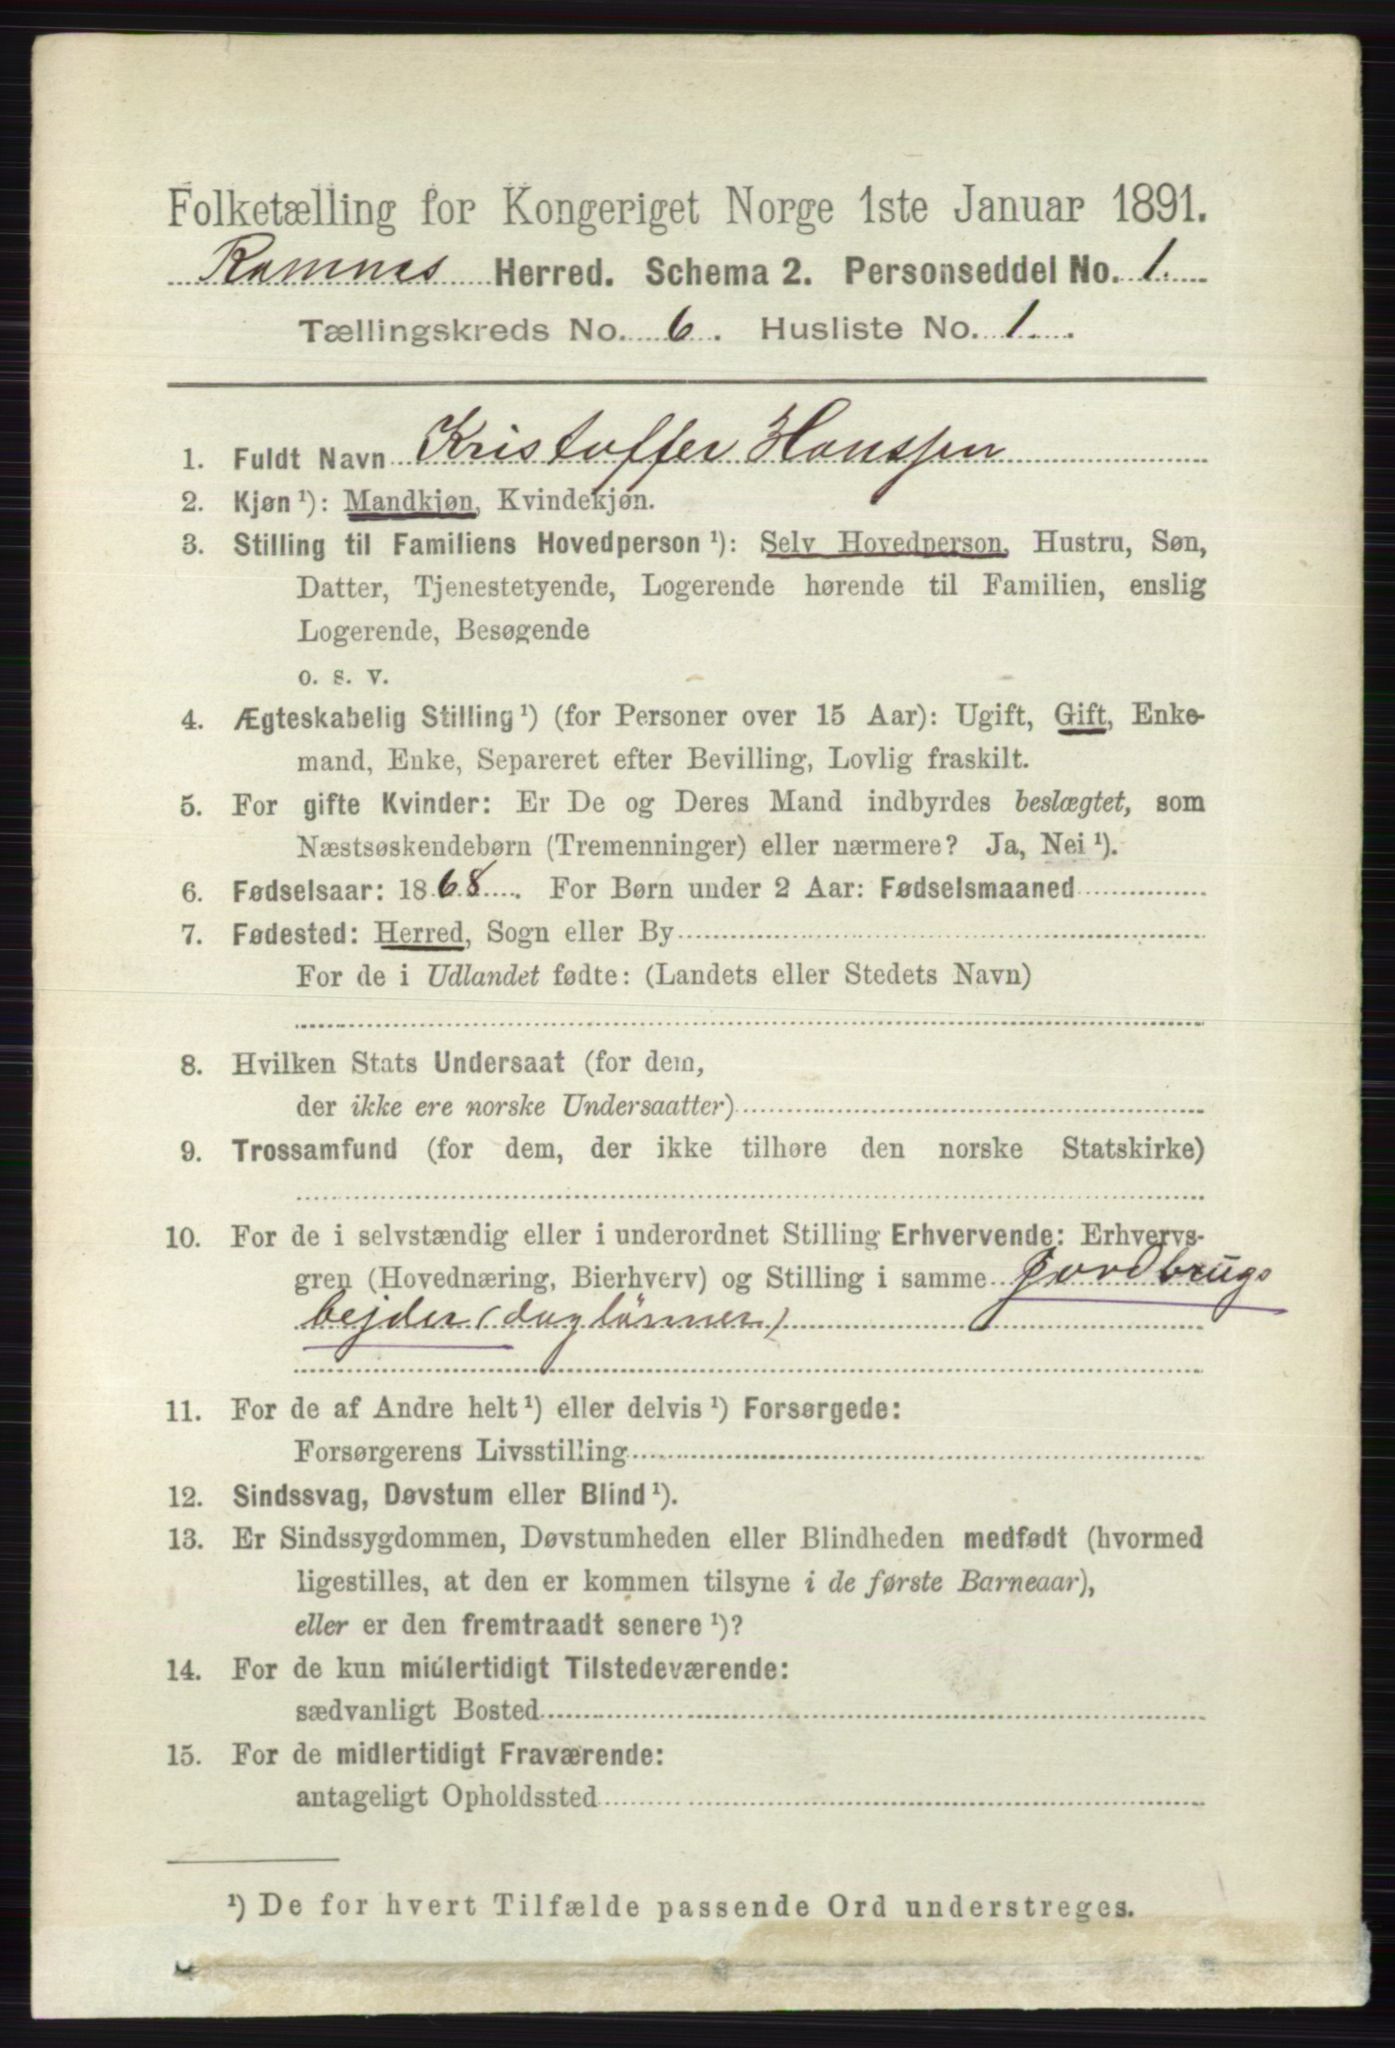 Folketælling for Kongeriget Norge 1ste Januar 1891.
Ramnes Herred. Schema 2. Personseddel No. 1.
Tællingskreds No. 6. Husliste No. 1.
1. Fuldt Navn Kristoffer Hanssen
2. Kjøn¹): Mandkjøn, Kvindekjøn.
3. Stilling til Familiens Hovedperson¹): Selv Hovedperson, Hustru, Søn,
Datter, Tjenestetyende, Logerende hørende til Familien, enslig
Logerende, Besøgende
o. s. v.
4. Ægteskabelig Stilling¹) (for Personer over 15 Aar): Ugift, Gift, Enke-
mand, Enke, Separeret efter Bevilling, Lovlig fraskilt.
5. For gifte Kvinder: Er De og Deres Mand indbyrdes beslægtet, som
Næstsøskendebørn (Tremenninger) eller nærmere? Ja, Nei¹).
6. Fødselsaar: 1868. For Børn under 2 Aar: Fødselsmaaned
7. Fødested: Herred, Sogn eller By
For de i Udlandet fødte: (Landets eller Stedets Navn)
8. Hvilken Stats Undersaat (for dem,
der ikke ere norske Undersaatter)
9. Trossamfund (for dem, der ikke tilhøre den norske Statskirke)
10. For de i selvstændig eller i underordnet Stilling Erhvervende: Erhvervs-
gren (Hovednæring, Bierhverv) og Stilling i samme jordbrugs
bejder (daglönner)
11. For de af Andre helt¹) eller delvis¹) Forsørgede:
Forsørgerens Livsstilling
12. Sindssvag, Døvstum eller Blind¹).
13. Er Sindssygdommen, Døvstumheden eller Blindheden medfødt (hvormed
ligestilles, at den er kommen tilsyne i de første Barneaar),
eller er den fremtraadt senere¹)?
14. For de kun midlertidigt Tilstedeværende:
sædvanligt Bosted
15. For de midlertidigt Fraværende:
antageligt Opholdssted
¹) De for hvert Tilfælde passende Ord understreges.